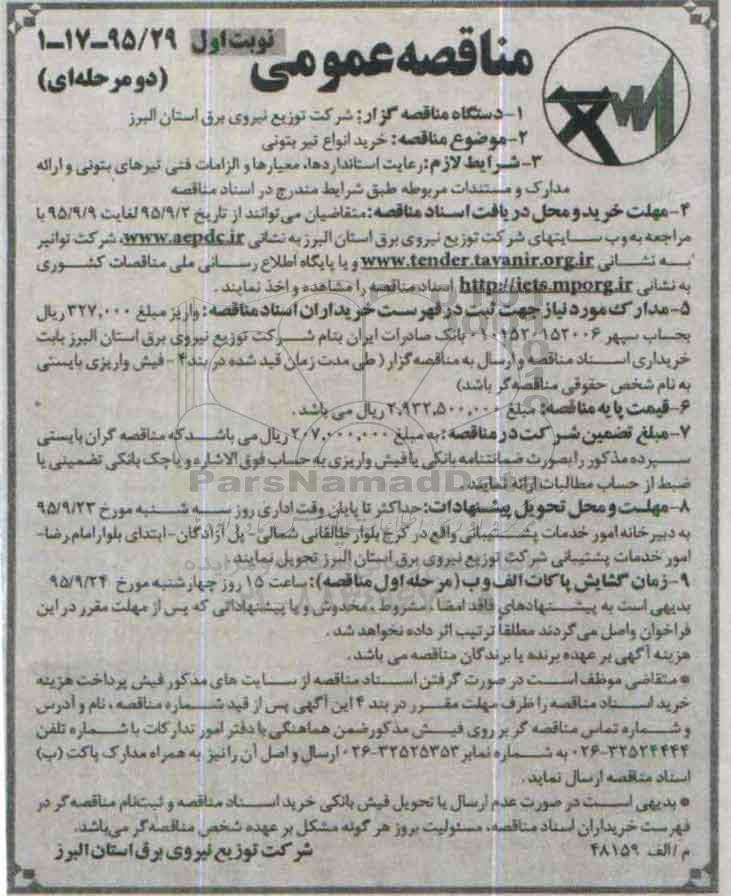 مناقصه عمومی نوبت اول ۹۵/۲۹-۱۷-۱
(دو مرحله‌ای)
۱-دستگاه مناقصه گزار: شرکت توزیع نیروی برق استان البرز
۲-موضوع مناقصه: خرید انواع تیر بتونی
۳-شرایط لازم: رعایت استانداردها، معیارها و الزامات فنی تیرهای بتونی و ارائه
مدارک و مستندات مربوطه طبق شرایط مندرج در اسناد مناقصه
۴-مهلت خرید و محل دریافت اسناد مناقصه: متقاضیان می‌توانند از تاریخ ۹۵/۹/۲ لغایت ۹۵/۹/۹ با
مراجعه به وب سایتهای شرکت توزیع نیروی برق استان البرز به نشانی www.aepdc.ir، شرکت توانیر
به نشانی www.tender.tavanir.org.ir و یا پایگاه اطلاع رسانی ملی مناقصات کشوری
به نشانی http://iets.mporg.ir اسناد مناقصه را مشاهده و اخذ نمایند.
۵-مدارک مورد نیاز جهت ثبت در فهرست خریداران اسناد مناقصه: واریز مبلغ ۳۲۷,۰۰۰ ریال
بحساب سپهر ۰۱۰۱۵۲۰۱۵۲۰۰۶ بانک صادرات ایران بنام شرکت توزیع نیروی برق استان البرز بابت
خریداری اسناد مناقصه و ارسال به مناقصه گزار (طی مدت زمان قید شده در بند ۴ - فیش واریزی بایستی
به نام شخص حقوقی مناقصه‌گر باشد)
۶-قیمت پایه مناقصه: مبلغ ۲,۹۳۲,۵۰۰,۰۰۰ ریال می باشد.
۷-مبلغ تضمین شرکت در مناقصه: به مبلغ ۲۰۷,۰۰۰,۰۰۰ ریال می باشد که مناقصه گران بایستی
سپرده مذکور را بصورت ضمانتنامه بانکی یا فیش واریزی به حساب فوق الاشاره و یا چک بانکی تضمینی یا
ضبط از حساب مطالبات ارائه نمایند.
۸-مهلت و محل تحویل پیشنهادات: حداکثر تا پایان وقت اداری روز سه شنبه مورخ ۹۵/۹/۲۳
به دبیرخانه امور خدمات پشتیبانی واقع در کرج بلوار طالقانی شمالی-پل آزادگان-ابتدای بلوار امام رضا-
امور خدمات پشتیبانی شرکت توزیع نیروی برق استان البرز تحویل نمایند.
۹-زمان گشایش پاکات الف و ب (مرحله اول مناقصه): ساعت ۱۵ روز چهارشنبه مورخ ۹۵/۹/۲۴
بدیهی است به پیشنهادهای فاقد امضا، مشروط، مخدوش و یا پیشنهاداتی که پس از مهلت مقرر در این
فراخوان واصل می‌گردند مطلقا ترتیب اثر داده نخواهد شد.
هزینه آگهی بر عهده برنده یا برندگان مناقصه می باشد.
* متقاضی موظف است در صورت گرفتن اسناد مناقصه از سایت های مذکور فیش پرداخت هزینه
خرید اسناد مناقصه را ظرف مهلت مقرر در بند ۴ این آگهی پس از قید شماره مناقصه، نام و آدرس
و شماره تماس مناقصه گر بر روی فیش مذکور ضمن هماهنگی با دفتر امور تدارکات با شماره تلفن
۰۲۶-۳۲۵۲۴۴۴۴ به شماره نمابر ۰۲۶-۳۲۵۲۵۳۵۳ ارسال و اصل آن را نیز به همراه مدارک پاکت (ب)
اسناد مناقصه ارسال نماید.
* بدیهی است در صورت عدم ارسال یا تحویل فیش بانکی خرید اسناد مناقصه و ثبت‌نام مناقصه‌گر در
فهرست خریداران اسناد مناقصه، مسئولیت بروز هر گونه مشکل بر عهده شخص مناقصه‌گر می‌باشد.
م/الف ۴۸۱۵۹ شرکت توزیع نیروی برق استان البرز
ParsNamadData